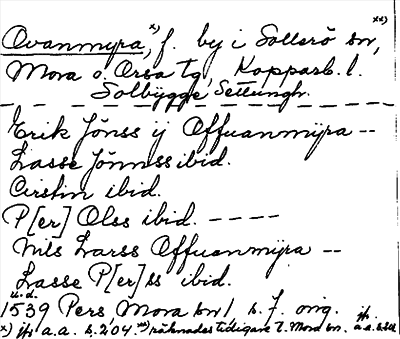 Ovanmyra,ˣ⁾ f. by i Sollerö sn,ˣˣ⁾
Mora o. Orsa tg, Kopparb. l.
Solbygge Settungh.
Erik Jönss ij Offuanmÿra --
Lasse Jönnss ibid.
Cirstin ibid.
P[er] Olss ibid. ----
Nils Larss Offuanmÿra --
Lasse P[er]ss ibid.
u.d.
1539 Pers, Mora sn 1 s. 7. orig.
x) jfr a.a. s. 204. xx) räknades tidigare t. Mora sn. jfr. a.a.